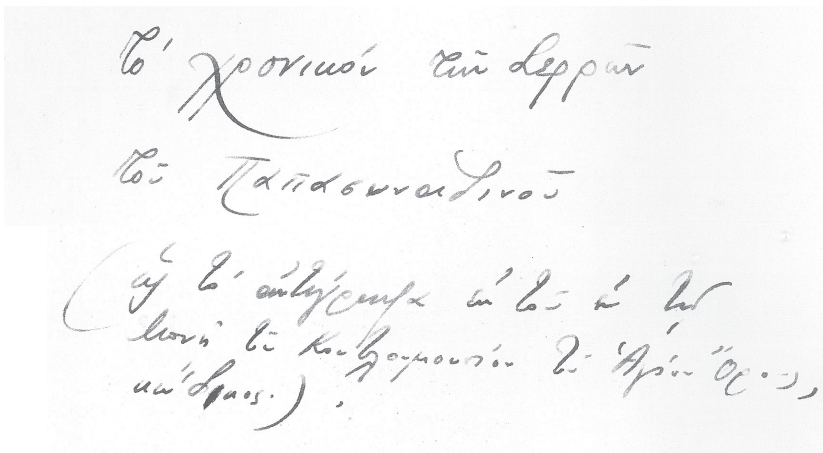 Τὸ χρονικόν τῶν Σερρῶν
τοῦ Παπασυναδινοῦ
τὸ ἀντίγραφα ἐκ τοῦ ἐν τῇ
Μονῇ τοῦ Κουτλουμουσίου τοῦ Ἁγίου Ὄρους,
κώδικος.).